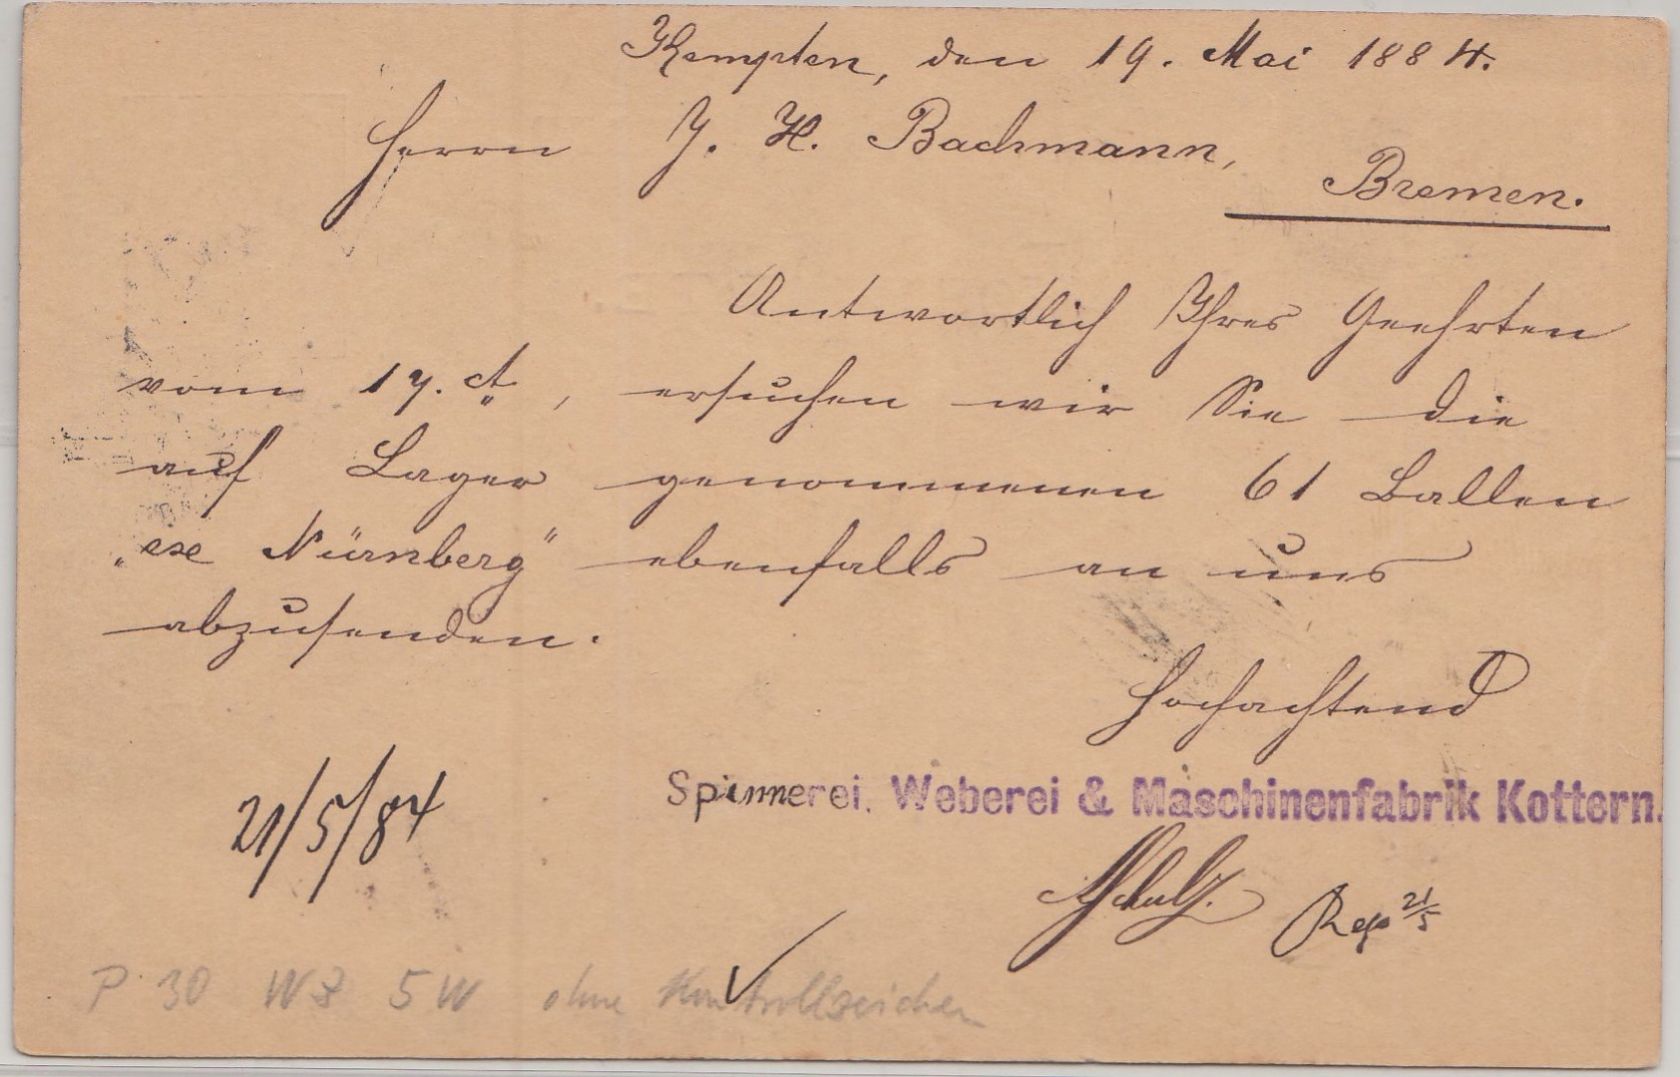 Kempten, den 19. Mai 1884.
Herrn J. H. Bachmann,
Bremen.
Antwortlich Ihres Geehrten
vom 17. ct, ersuchen wir Sie die
auf Lager genommenen 61 Ballen
„exe Nürnberg" ebenfalls an uns
abzusenden.
Hochachtend
Spinnerei. Weberei & Maschinenfabrik Kottern.
21/5/84
21/5
P 30 WZ 5W ohne Kontrollzeichen